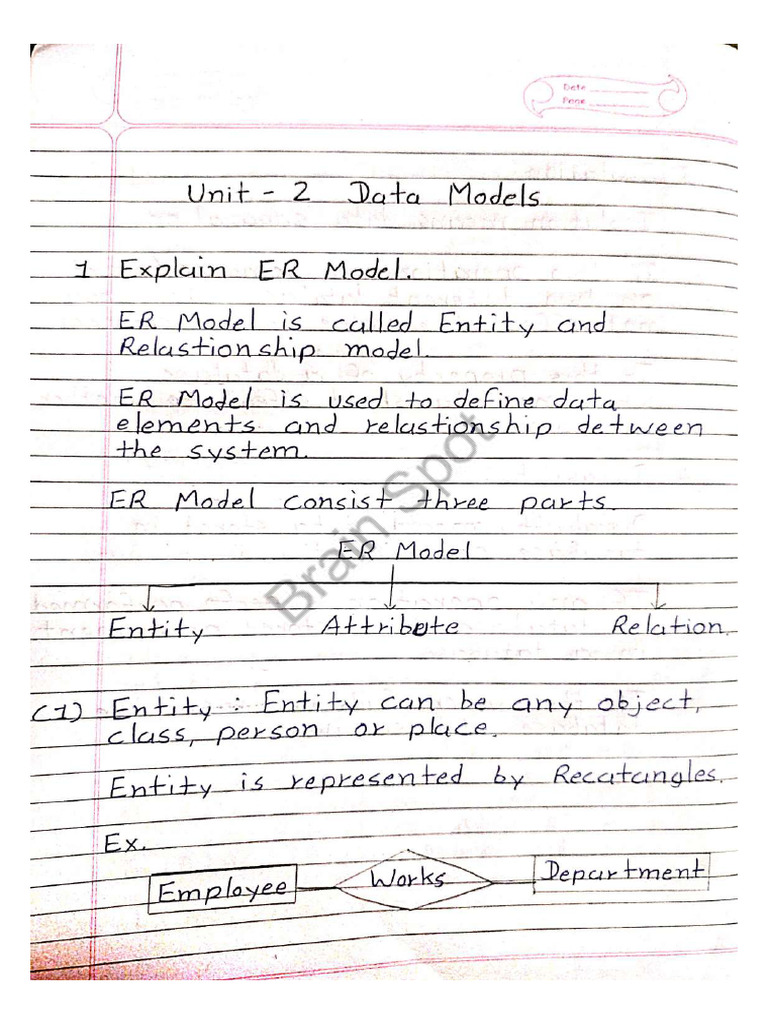 Date
Page
Unit - 2 Data Models
1 Explain ER Model.
ER Model is called Entity and
Relastionship model.
ER Model is used to define data
elements and relastionship detween
the system.
ER Model consist three parts.
ER Model
Entity Attribute Relation.
(1) Entity : Entity can be any object,
class, person or place.
Entity is represented by Recatangles.
Ex.
Employee Works Department
Brain Spot